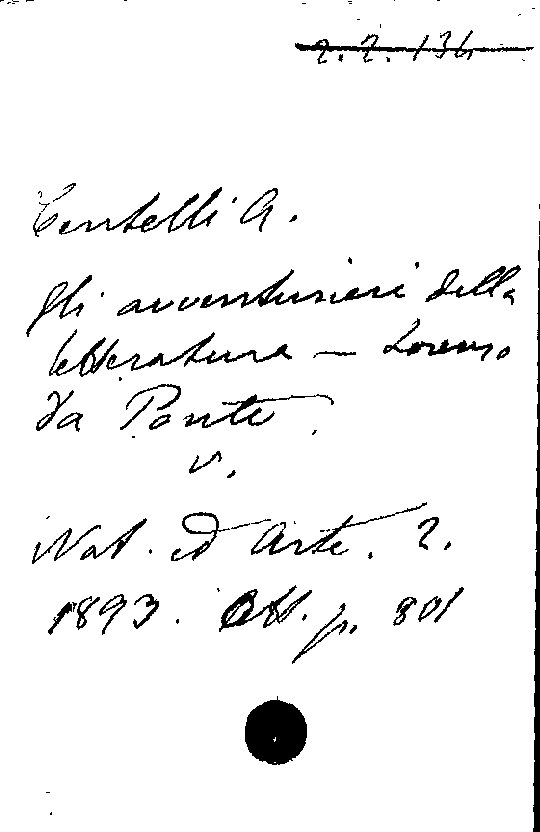 2.2.136
Centelli A.
Gli avventurieri della
letteratura — Lorenzo
da Ponte.
v.
Nat. ed Arte. 2.
1893. Ott. p. 801